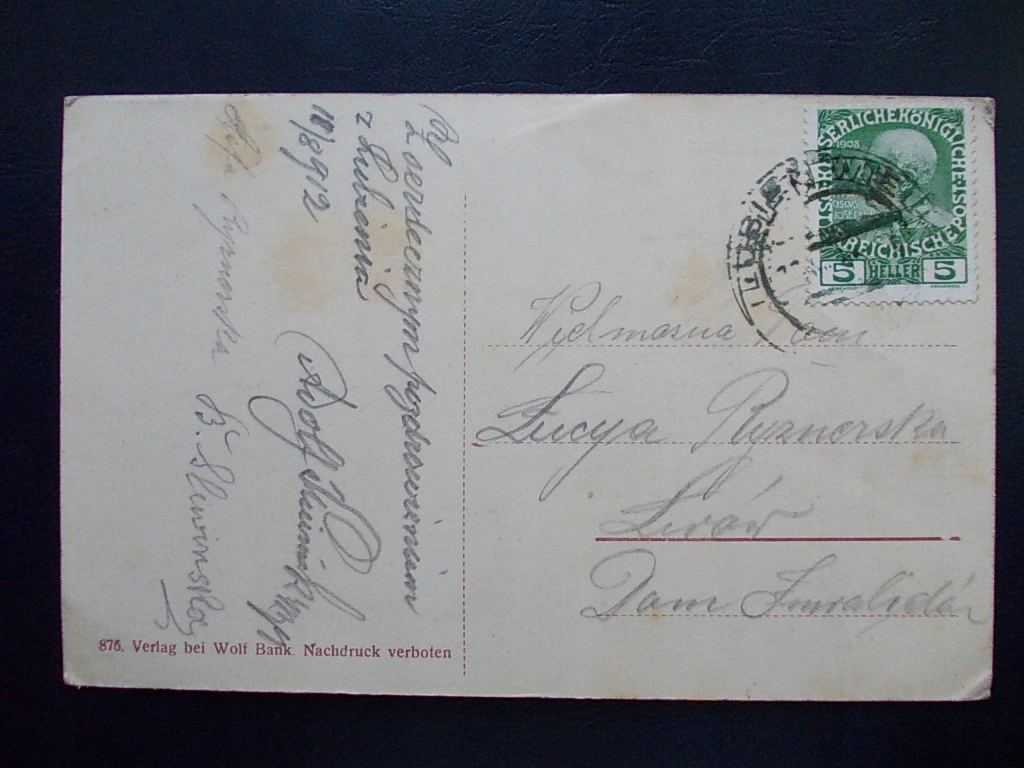 z serdecznym pozdrowieniem
z Lubienia
18/8 912
Adolf
B. Śliwińska
876. Verlag bei Wolf Bank. Nachdruck verboten
KAISERLICHEKÖNIGLICHE
ÖSTERREICHISCHEPOST
1908
5 HELLER 5
LUBIEŃ
Wielmożna Pani
Lucya Ryznerska
Lwów
Dom Inwalidów